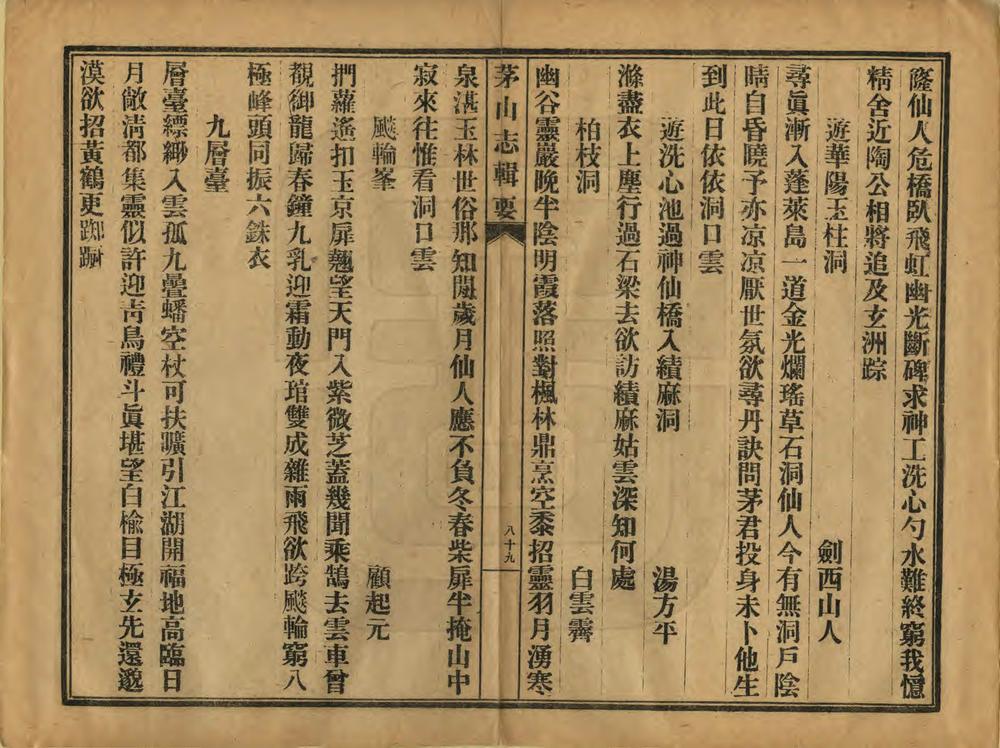 窿仙人危橋臥飛虹幽光斷碑求神工洗心勺水難終窮我憶
精舍近陶公相將追及玄洲踪
遊華陽玉柱洞 劍西山人
尋眞漸入蓬萊島一道金光爛瑤草石洞仙人今有無洞戶陰
晴自昏曉予亦凉凉厭世氛欲尋丹訣問茅君投身未卜他生
到此日依依洞口雲
遊洗心池過神仙橋入績麻洞 湯方平
滌盡衣上塵行過石梁去欲訪績麻姑雲深知何處
柏枝洞 白雲霽
幽谷靈巖晚半陰明霞落照對楓林鼎烹空黍招靈羽月湧寒
茅山志輯要
八十九
泉湛玉林世俗那知閒歲月仙人應不負冬春柴扉半掩山中
寂來往惟看洞口雲
飈輪峯 顧起元
捫蘿遙扣玉京扉翹望天門入紫微芝蓋幾聞乘鵠去雲車曾
覩御龍歸春鐘九乳迎霜動夜琯雙成雜雨飛欲跨飈輪窮八
極峰頭同振六銖衣
九層臺
層臺縹緲入雲孤九疊蟠空杖可扶曠引江湖開福地高臨日
月敞淸都集靈似許迎靑鳥禮斗眞堪望白楡目極玄先還邈
漠欲招黃鶴更踟躕